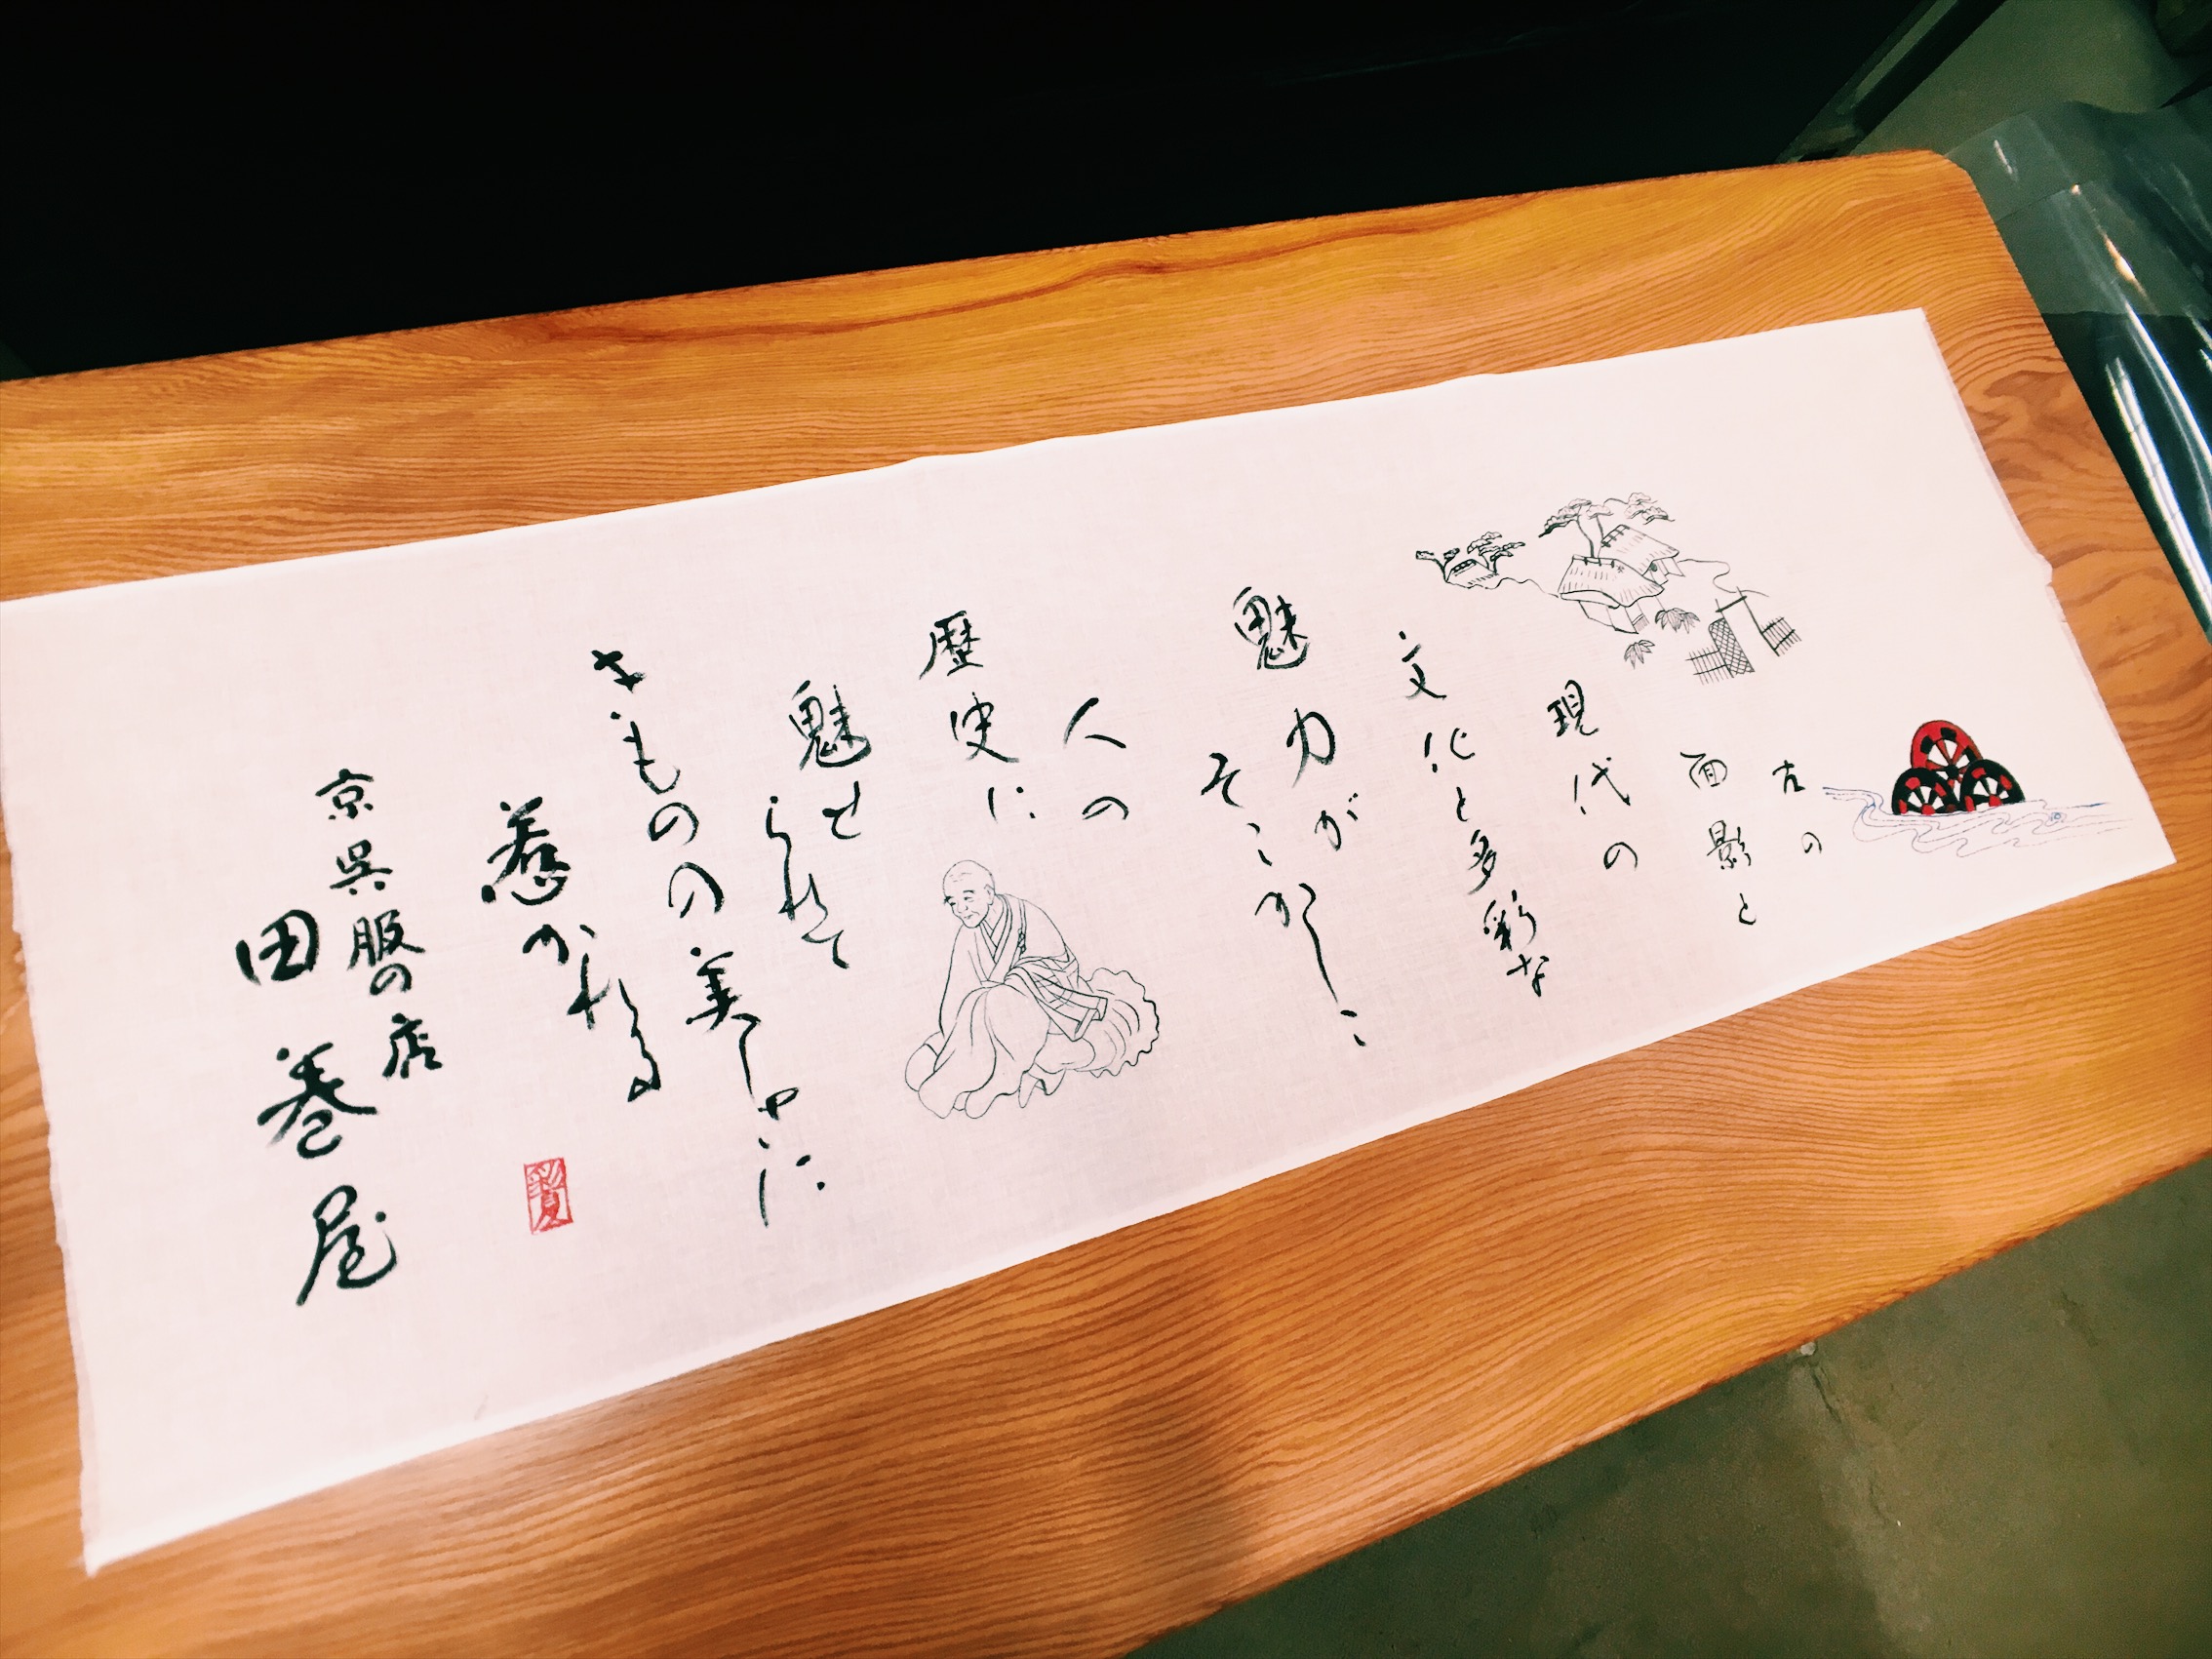 古の
面影と
現代の
文化と多彩な
魅力が
そこかしこ
人の
歴史に
魅せられて
きものの美しさに
惹かれる
京呉服の店
田巻屋
彩夏